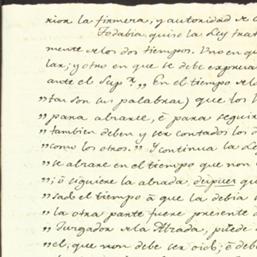 rior la firmeza, y autoridad de c
Todabia quiso la Ley trat
mente de los dos tiempos. Uno en qu
lar; y otro en que se debe expresa
ante el Sup.ʳ „ En el tiempo de lo
„ tar (son sus palabras) que los
„ para alzarse, é para seguir
„ tambien deben y ser contados los d
„ como los otros." Y continua la Le
„ se alzare en el tiempo que non
„; ó siguiere la alzada, despues qu
„ sado el tiempo á que la debia
„ la otra parte fuere presente d
„ Juzgador de la Alzada, puede
„ el, que non debe ser oido; é debe